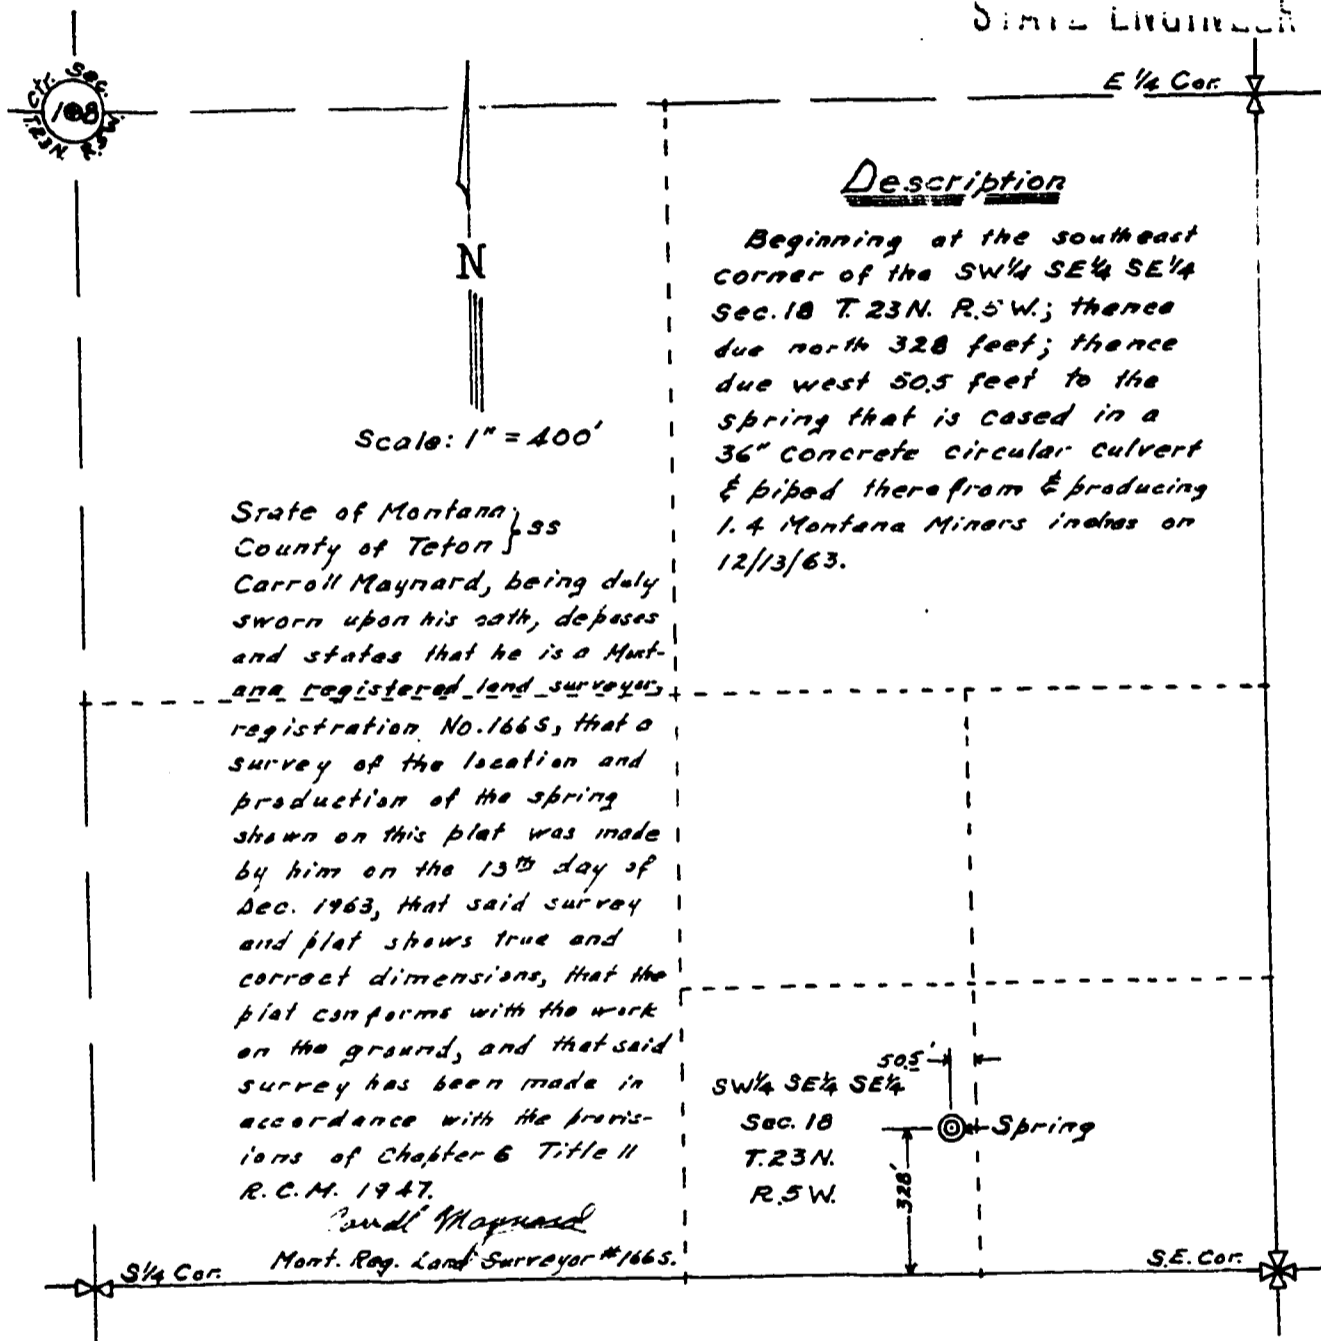 STATE ENGINEER
Ctr. Sec.
18
T.23N. R.5W.
E 1/4 Cor.
N
Scale: 1" = 400'
Description
Beginning at the southeast
corner of the SW1/4 SE1/4 SE1/4
Sec. 18 T. 23N. R.5W.; thence
due north 328 feet; thence
due west 50.5 feet to the
spring that is cased in a
36" concrete circular culvert
& piped therefrom & producing
1.4 Montana Miners inches on
12/13/63.
State of Montana } ss
County of Teton
Carroll Maynard, being duly
sworn upon his oath, deposes
and states that he is a Mont-
ana registered land surveyor,
registration No. 166S, that a
survey of the location and
production of the spring
shown on this plat was made
by him on the 13th day of
Dec. 1963, that said survey
and plat shows true and
correct dimensions, that the
plat conforms with the work
on the ground, and that said
survey has been made in
accordance with the provis-
ions of Chapter 6 Title 11
R.C.M. 1947.
Carroll Maynard
Mont. Reg. Land Surveyor #166S.
50.5'
SW1/4 SE1/4 SE1/4
Sec. 18
T.23N.
R.5W.
Spring
328'
S1/4 Cor.
S.E. Cor.